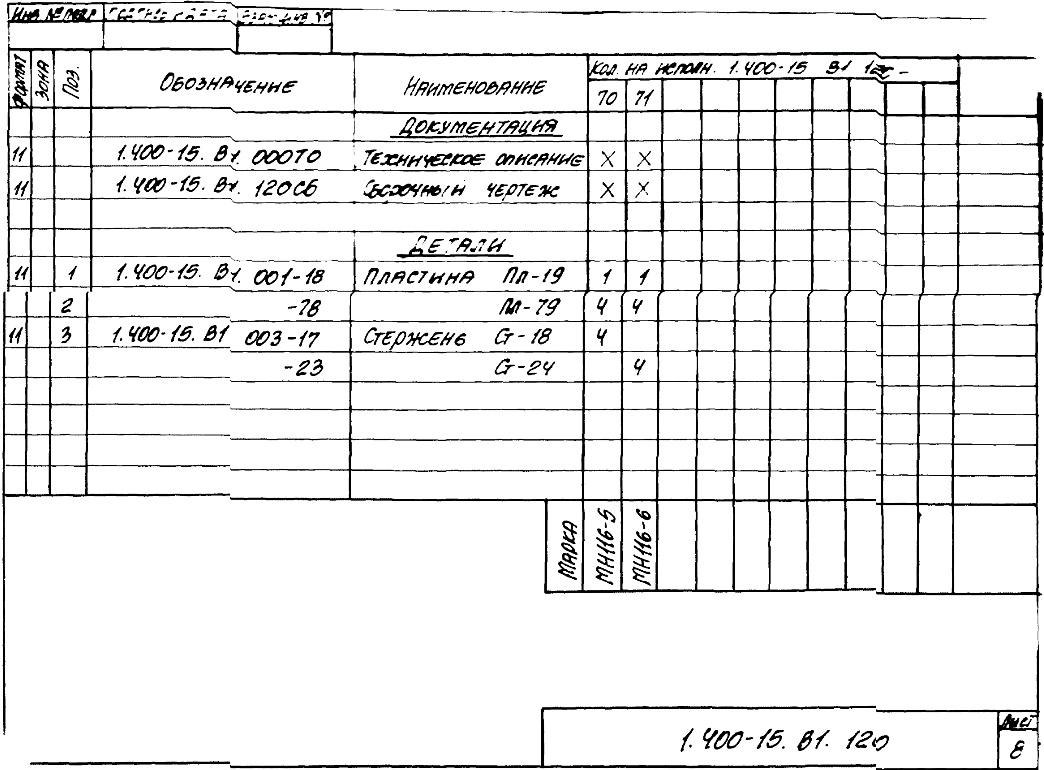 Инв. № подл. Подпись и дата Взам. инв. №
Формат Зона Поз. Обозначение Наименование Кол. на исполн. 1.400-15 В1 120 -
70 71
Документация
11 1.400-15. В1. 000ТО Техническое описание X X
11 1.400-15. В1. 120СБ Сборочный чертеж X X
Детали
11 1 1.400-15. В1. 001-18 Пластина Пл-19 1 1
2 -78 Пл-79 4 4
11 3 1.400-15. В1 003-17 Стержень Ст-18 4
-23 Ст-24 4
Марка МН116-5 МН116-6
1.400-15. В1. 120
Лист
8